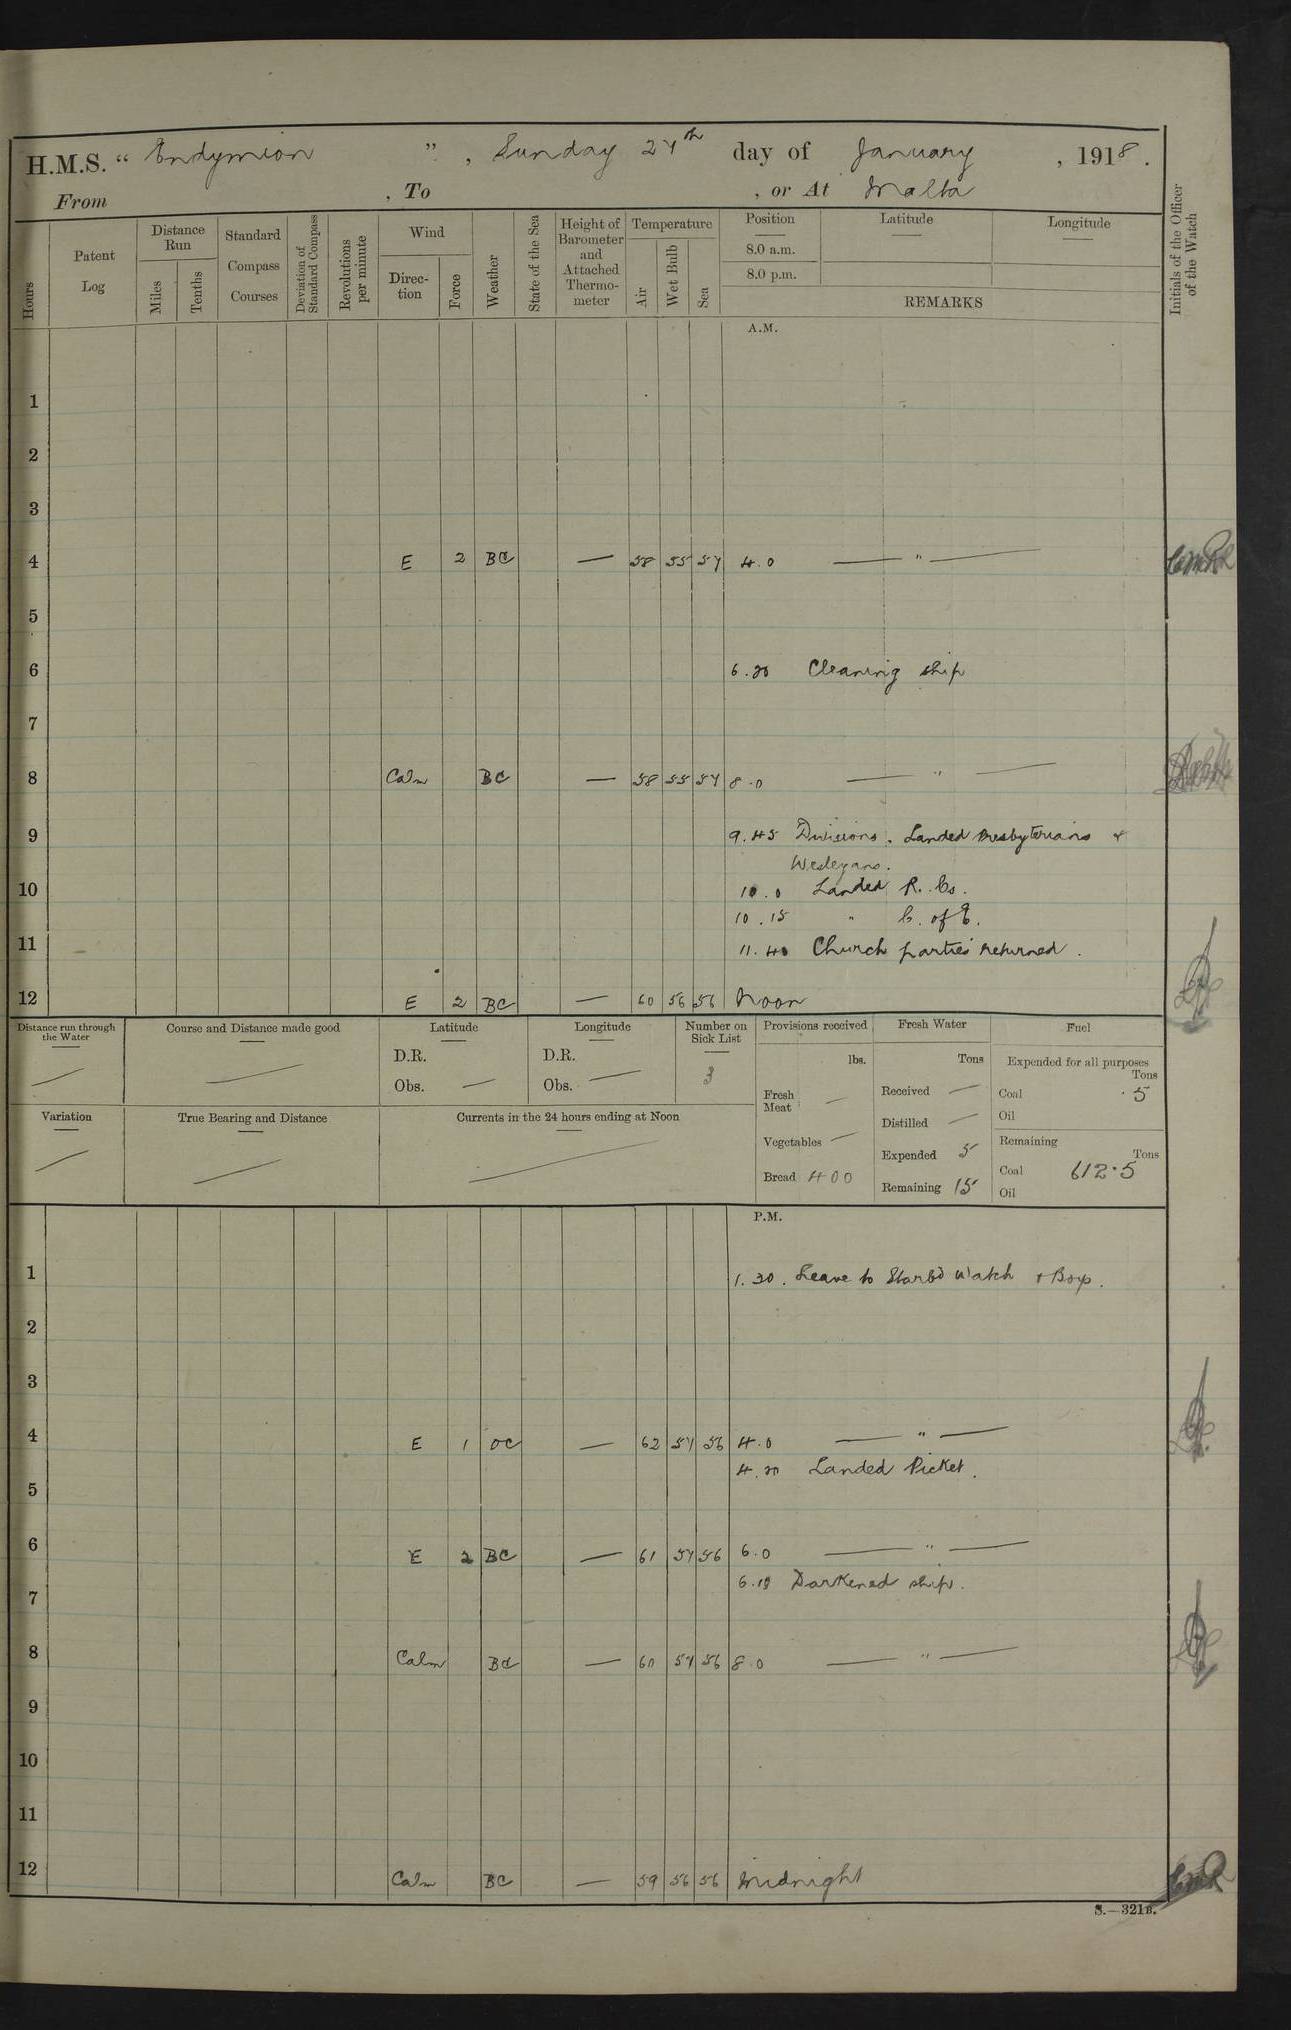 H.M.S. " Endymion ", Sunday 27th day of January, 1918.
From , To , or At Malta
Hours
Patent Log
Distance Run
Miles
Tenths
Standard Compass Courses
Deviation of Standard Compass
Revolutions per minute
Wind
Direction
Force
Weather
State of the Sea
Height of Barometer and Attached Thermometer
Temperature
Air
Wet Bulb
Sea
Position
Latitude
Longitude
8.0 a.m.
8.0 p.m.
REMARKS
Initials of the Officer of the Watch
A.M.
1
2
3
4 E 2 BC — 58 55 57 4.0 — " —
5
6 6.20 Cleaning ship
7
8 Calm BC — 58 55 57 8.0 — " —
9 9.45 Divisions. Landed Presbyterians &
Wesleyans.
10 10.0 Landed R. Cs.
10.15 " C. of E.
11 11.40 Church parties returned.
12 E 2 BC — 60 56 56 Noon
Distance run through the Water
Course and Distance made good
Latitude
D.R.
Obs. —
Longitude
D.R.
Obs. —
Number on Sick List
3
Provisions received
lbs.
Fresh Meat —
Vegetables —
Bread 400
Fresh Water
Tons
Received —
Distilled —
Expended 5
Remaining 15
Fuel
Expended for all purposes
Tons
Coal .5
Oil
Remaining
Tons
Coal 612.5
Oil
Variation
True Bearing and Distance
Currents in the 24 hours ending at Noon
P.M.
1 1.30. Leave to Starbd Watch & Boys.
2
3
4 E 1 OC — 62 57 56 4.0 — " —
4.20 Landed Picket.
5
6 E 2 BC — 61 57 56 6.0 — " —
6.10 Darkened ship.
7
8 Calm BC — 60 57 56 8.0 — " —
9
10
11
12 Calm BC — 59 56 56 Midnight
S.—321B.